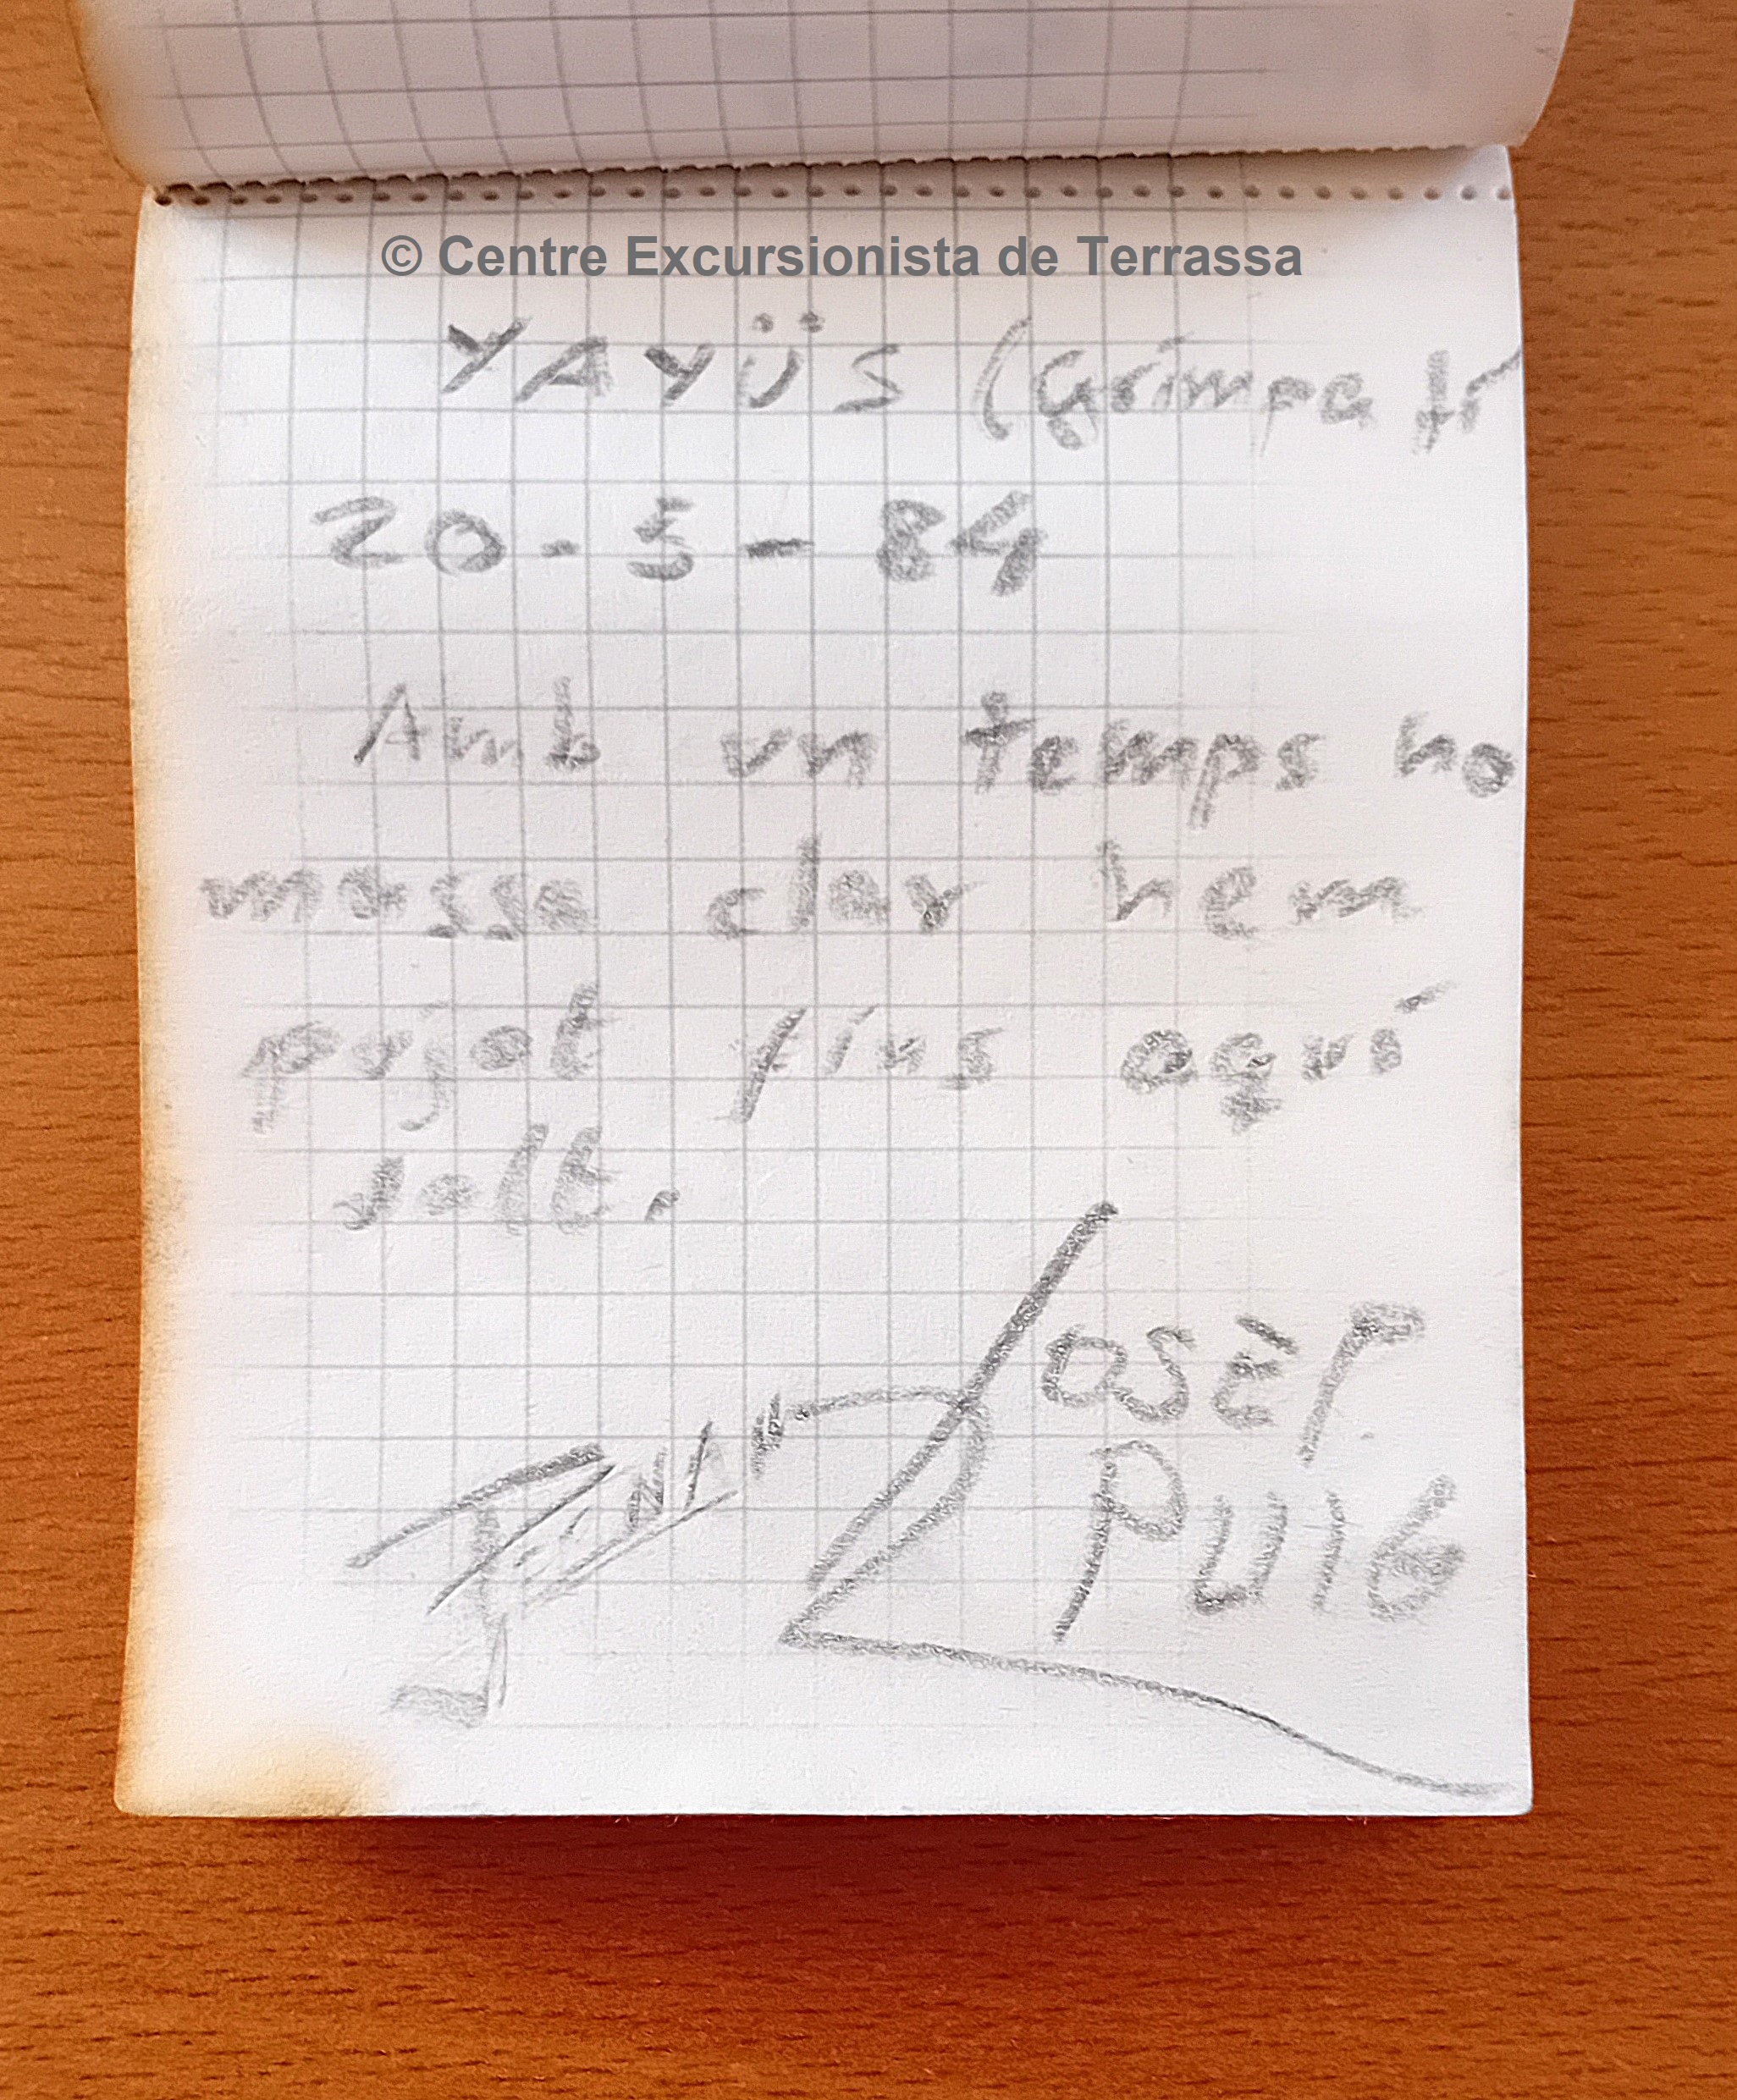 © Centre Excursionista de Terrassa
YAYÜS (Grimpa tr
20-5-84
Amb un temps no
massa clar hem
pujat fins aquí
dalt.
JOSÈP
PUIG